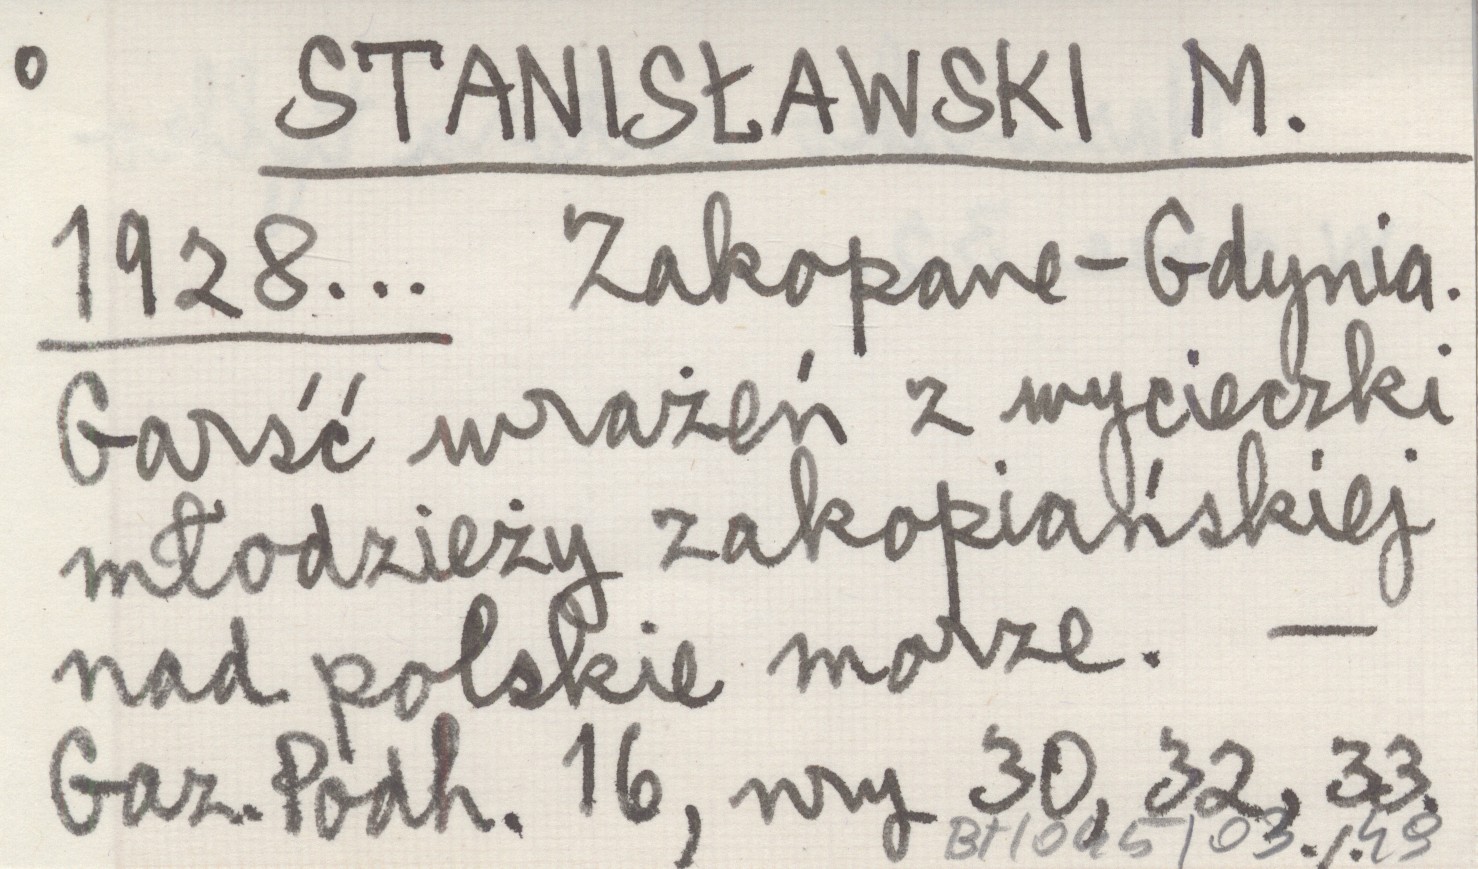 o STANISŁAWSKI M.
1928... Zakopane-Gdynia.
Garść wrażeń z wycieczki
młodzieży zakopiańskiej
nad polskie morze. —
Gaz. Podh. 16, nry 30, 32, 33.